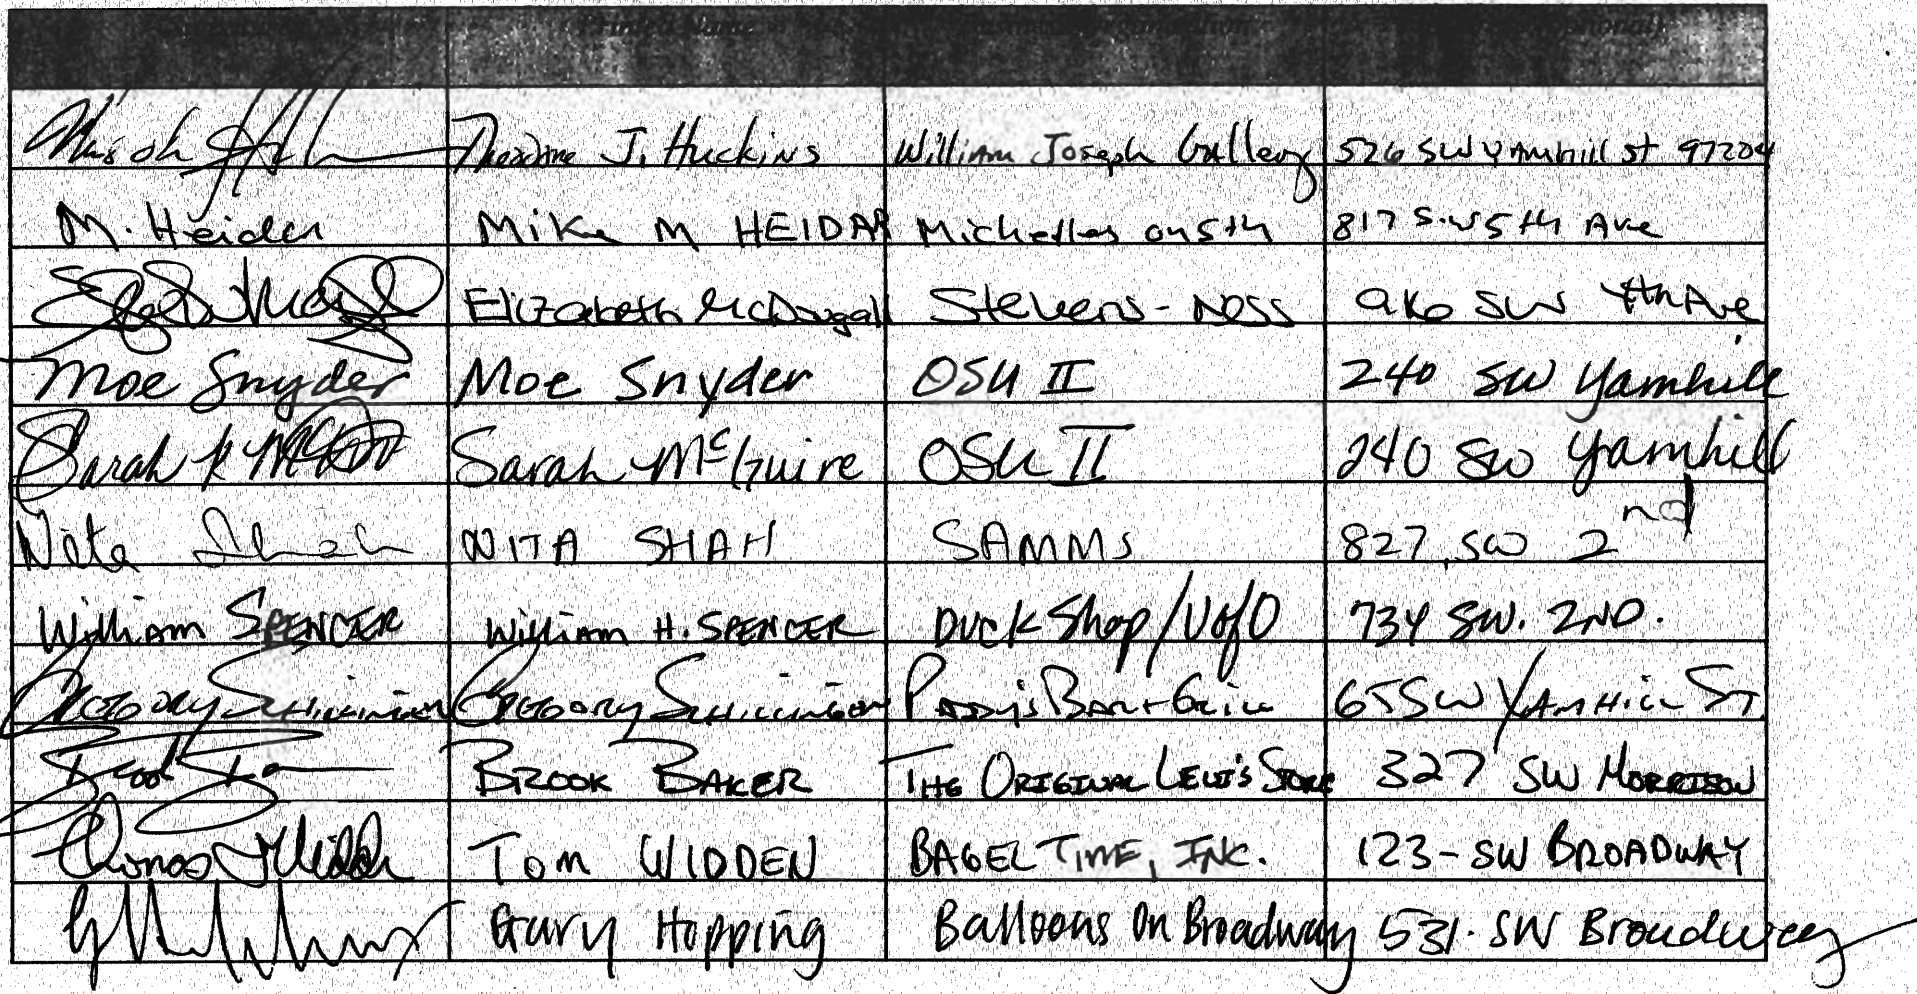 J. Huckins William Joseph Gallery 526 SW Yamhill st 97204
M. Heider Mike M HEIDAR Michelles on 5th 817 S.W 5th Ave
Elizabeth McDougall Stevens-Ness SW Ave
Moe Snyder Moe Snyder OSU II 240 SW Yamhill
Sarah K Sarah McGuire OSU II 240 SW Yamhill
Nita Shah NITA SHAH SAMMS 827 SW 2nd
William SPENCER William H. SPENCER Duck Shop/UofO 734 SW. 2ND.
GREGORY GREGORY PADDY'S BAR + GRILL 65 SW YAMHILL ST.
BROOK BAKER THE ORIGINAL LEVI'S STORE 327 SW MORRISON
Thomas Tom WIDDEN BAGEL TIME, INC. 123-SW BROADWAY
Gary Hopping Balloons On Broadway 531. SW Broadway